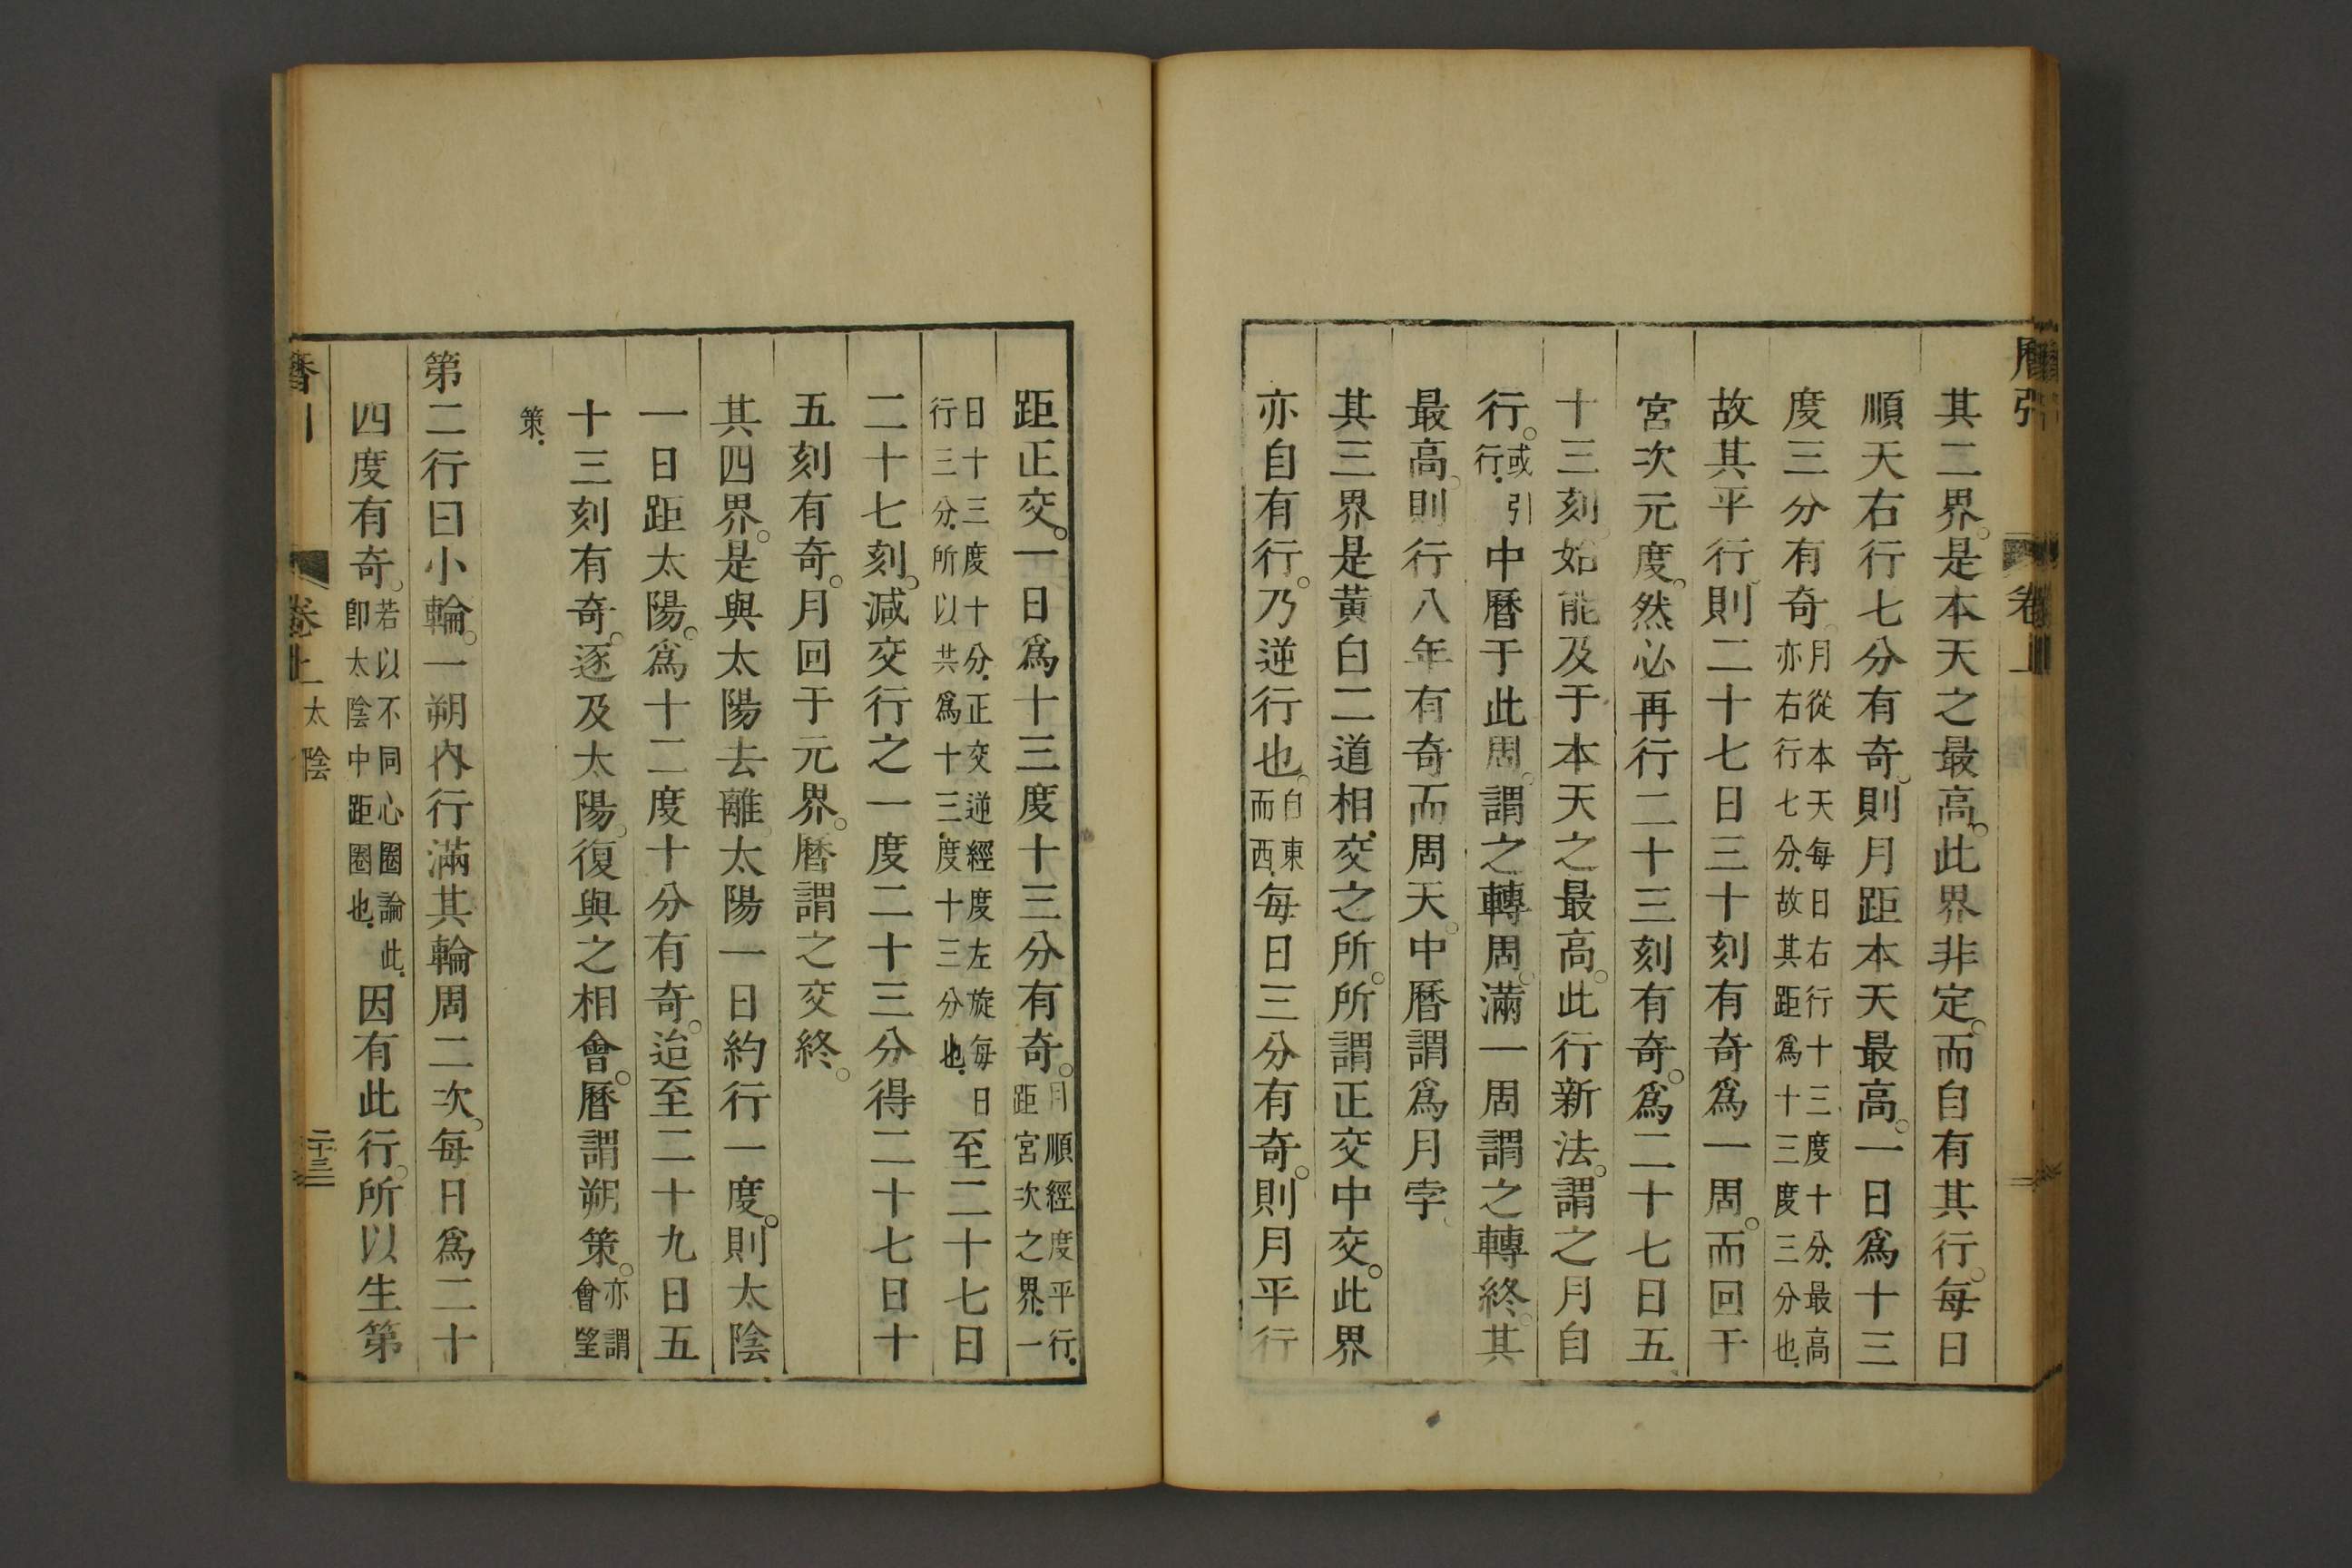 曆引 卷上
其二界。是本天之最高。此界非定。而自有其行。每日
順天右行七分有奇。則月距本天最高。一日爲十三
度三分有奇。月從本天每日右行十三度十分。最高亦右行七分。故其距爲十三度三分也。
故其平行。則二十七日三十刻有奇爲一周。而回于
宮次元度。然必再行二十三刻有奇。爲二十七日五
十三刻。始能及于本天之最高。此行新法。謂之月自
行。或引行。中曆于此周。謂之轉周。滿一周謂之轉終。其
最高。則行八年有奇而周天。中曆謂爲月孛。
其三界是黃白二道相交之所。所謂正交中交。此界
亦自有行。乃逆行也。自東而西。每日三分有奇。則月平行
距正交。一日爲十三度十三分有奇。月順經度平行。距宮次之界。一日十三度十分。正交逆經度左旋每日行三分。所以共爲十三度十三分也。至二十七日
二十七刻。減交行之一度二十三分得二十七日十
五刻有奇。月回于元界。曆謂之交終。
其四界。是與太陽去離。太陽一日約行一度。則太陰
一日距太陽。爲十二度十分有奇。迨至二十九日五
十三刻有奇。逐及太陽。復與之相會。曆謂朔策。亦謂會望
策。
第二行曰小輪。一朔內行滿其輪周二次。每日爲二十
四度有奇。若以不同心圈論此。卽太陰中距圈也。因有此行。所以生第
曆引 卷上 太陰 二十三